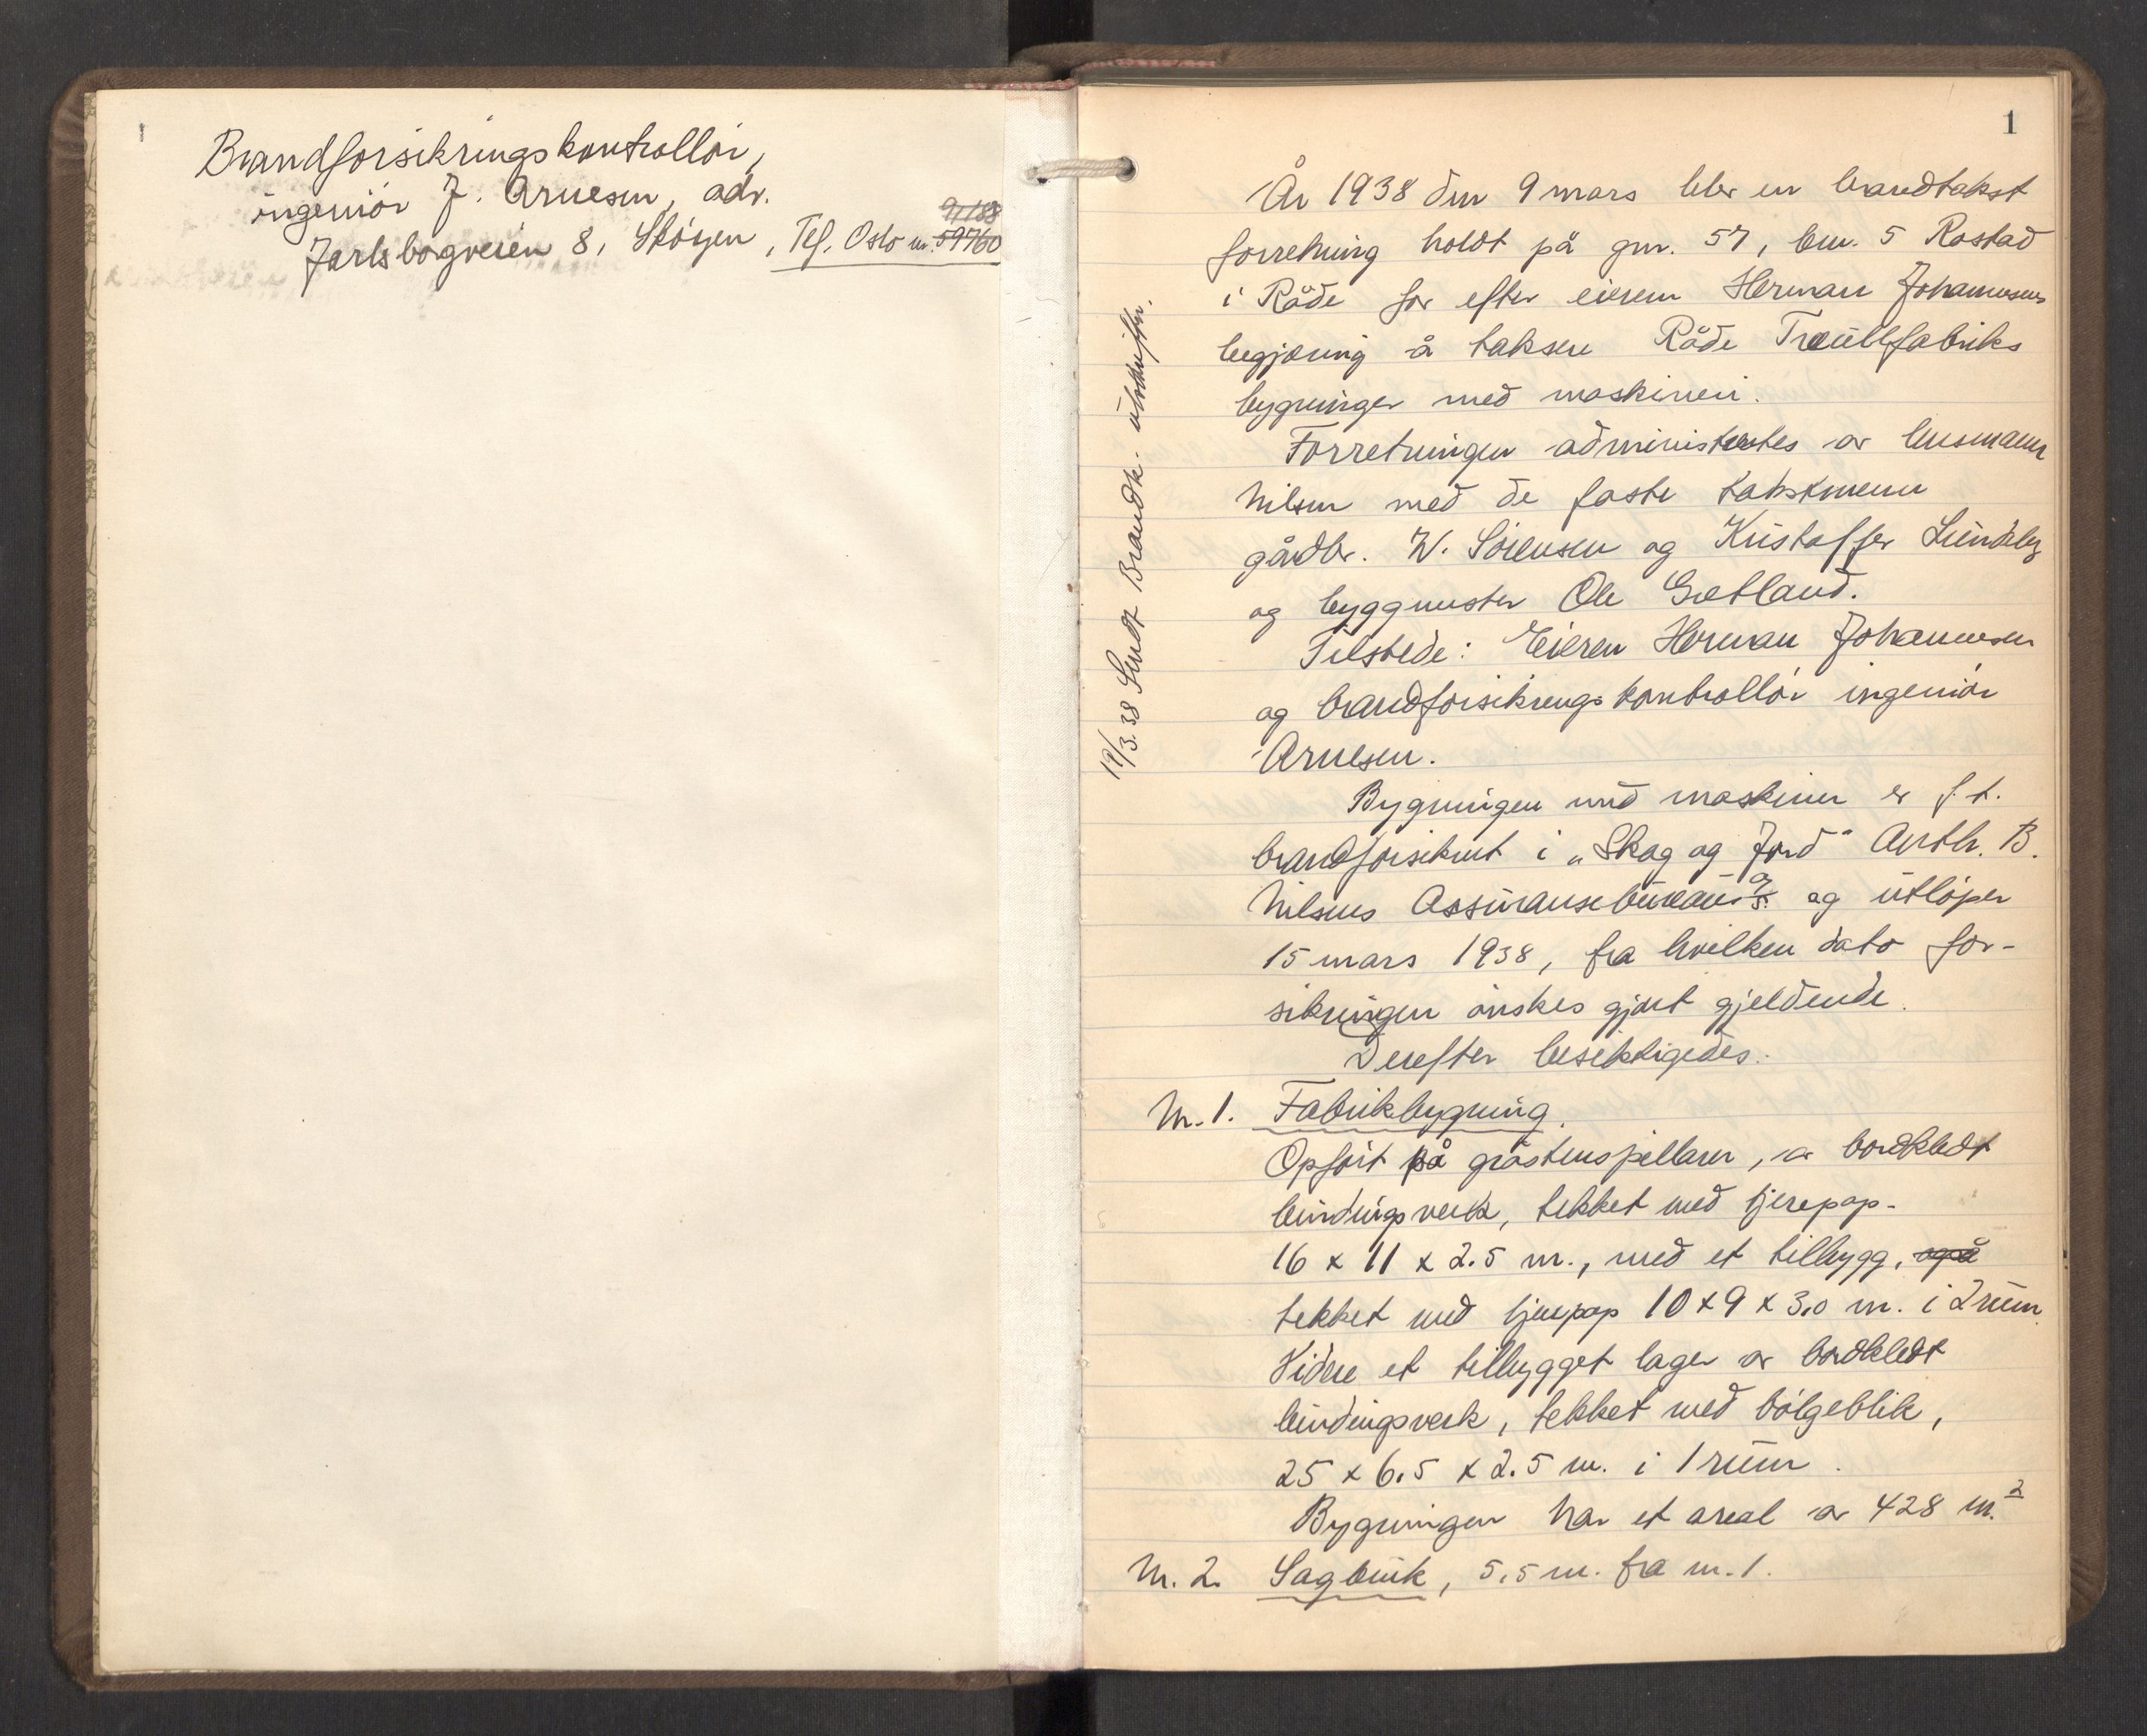 Brandforsikringskontrollör,
ingeniör J. Arnesen, adr.
Jarlsborgveien 8, Sköyen, Tlf. Oslo nr. 59760
1
År 1938 den 9 mars blev en brandtakst
forretning holdt på gnr. 57, bnr. 5 Rostad
i Råde for efter eieren Herman Johannesens
begjæring å taksere Råde Treullfabriks
bygninger med maskineri.
Forretningen administrertes av lensmann
Nilsen med de faste takstmenn
gårdbr. W. Sörensen og Kristoffer Lundeby
og byggmester Ole Gretland.
Tilstede: Eieren Herman Johannesen
og brandforsikringskontrollör ingeniör
Arnesen.
Bygningen med maskiner er f. t.
brandforsikret i „Skog og Jord" Arth. B.
Nilsens Assuransebureau A/S. og utlöper
15 mars 1938, fra hvilken dato for-
sikringen önskes gjort gjeldende.
Derefter besiktigedes:
Nr. 1. Fabrikbygning.
Opfört på gråstenspillarer, av bordkledt
bindingsverk, tekket med tjerepap.
16 x 11 x 2.5 m., med et tilbygg, også
tekket med tjerepap 10 x 9 x 3,0 m. i 2 rum.
Videre et tilbygget lager av bordkledt
bindingsverk, tekket med bölgeblik,
25 x 6.5 x 2.5 m. i 1 rum.
Bygningen har et areal av 428 m.²
Nr. 2. Sagbruk, 5,5 m. fra nr. 1.
19/3.38 Sendt Brandk. utskriften.